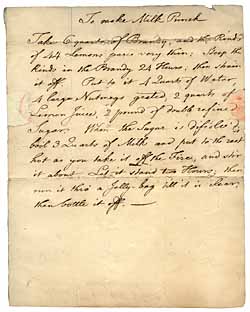 To make Milk Punch
Take 6 quarts of Brandy, and the Rinds
of 44 Lemons pared very thin; Steep the
Rinds in the Brandy 24 Hours, then strain
it off. Put to it 4 Quarts of Water,
4 large Nutmegs grated, 2 quarts of
Lemon Juice, 2 pound of double refined
Sugar. When the Sugar is dissolv'd
boil 3 Quarts of Milk and put to the rest
hot as you take it off the Fire, and stir
it about. Let it stand two Hours; then
run it thro' a Jelly-bag till it is clear;
then bottle it off. —